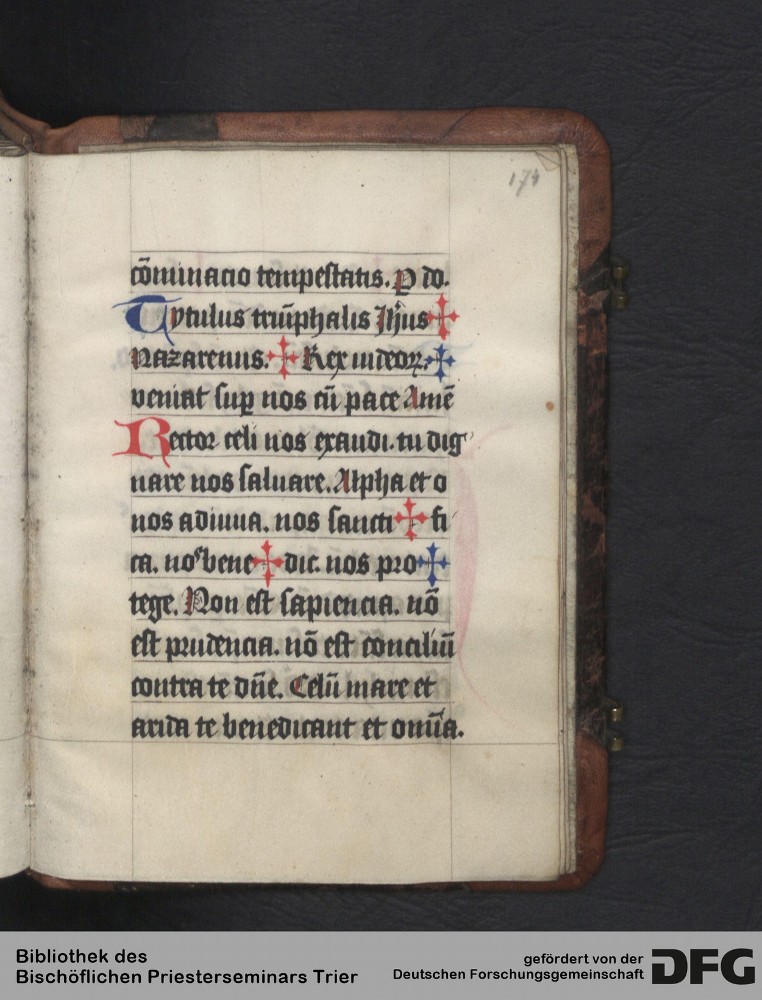 174
cōminacio tempestatis. P do.
Tytulus triūphalis Jhūs ✠
Nazarenus. ✠ Rex iudeoꝝ. ✠
veniat suꝑ nos cū pace Amē
Rector celi nos exaudi. tu dig
nare nos saluare. Alpha et o
nos adiuua. nos sancti ✠ fi
ca. nos bene ✠ dic. nos pro ✠
tege. Non est sapiencia. nō
est prudencia. nō est conciliū
contra te dn̄e. Celū mare et
arida te benedicant et om̄ia.
Bibliothek des
Bischöflichen Priesterseminars Trier
gefördert von der
Deutschen Forschungsgemeinschaft
DFG